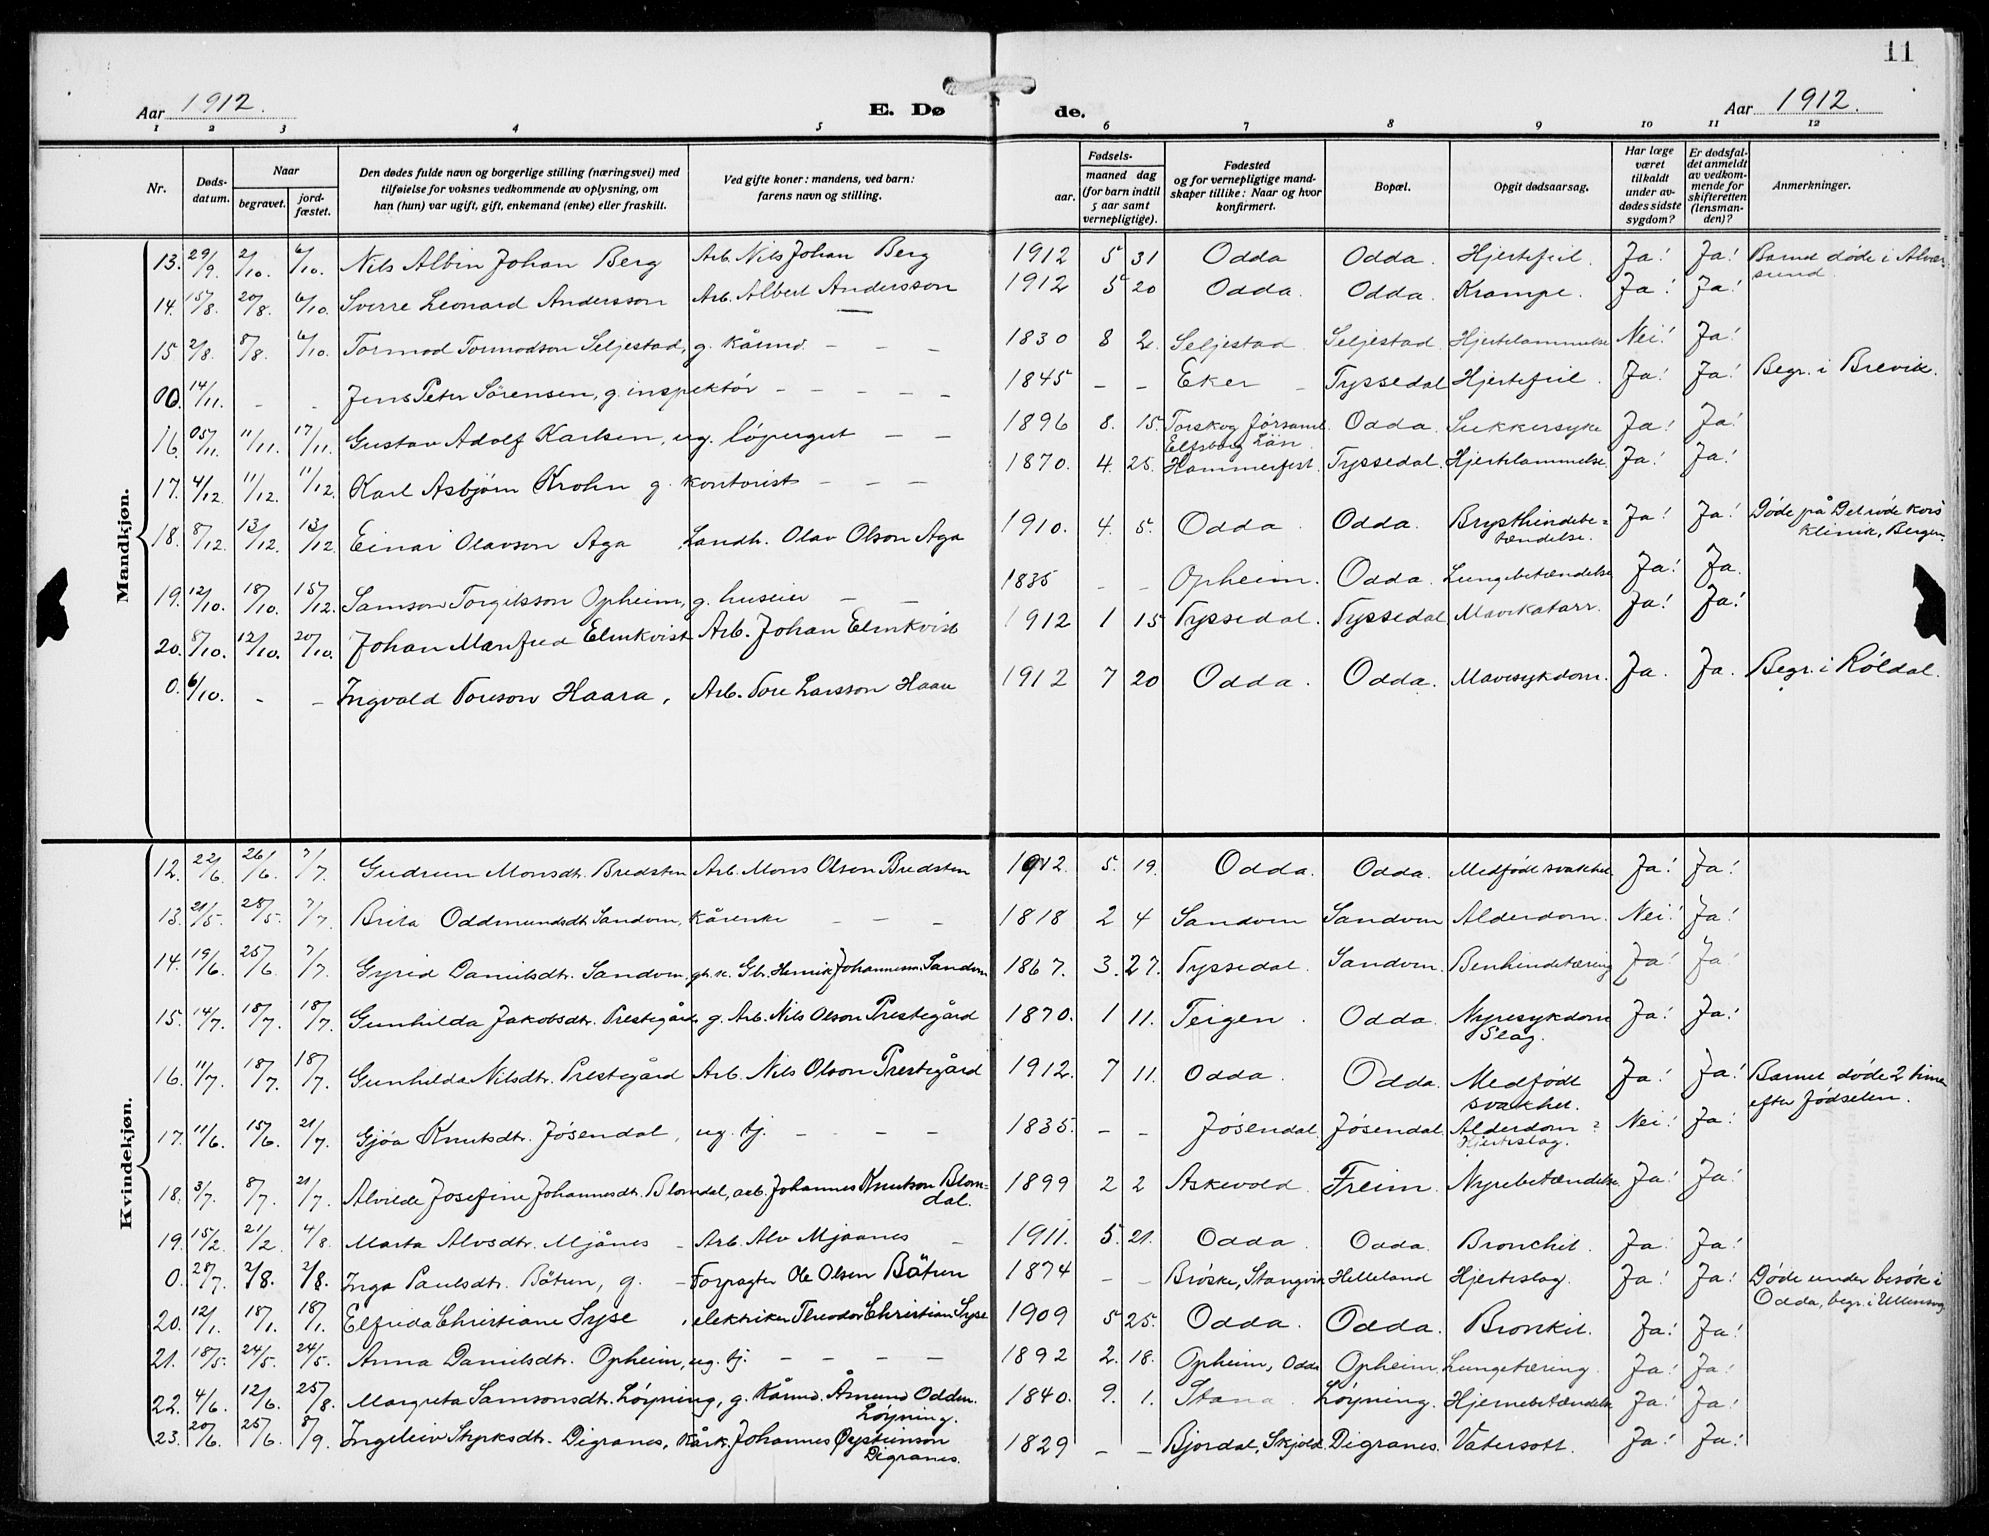 11
Aar 1912. E. Dø de. Aar 1912.
1 2 3 4 5 6 7 8 9 10 11 12
Nr. Døds-datum. Naar begravet. jord-fæstet. Den dødes fulde navn og borgerlige stilling (næringsvei) med tilføielse for voksnes vedkommende av oplysning, om han (hun) var ugift, gift, enkemand (enke) eller fraskilt. Ved gifte koner: mandens, ved barn: farens navn og stilling. Fødsels- aar. maaned dag (for barn indtil 5 aar samt vernepligtige). Fødested og for vernepligtige mandskaper tillike: Naar og hvor konfirmert. Bopæl. Opgit dødsaarsag. Har læge været tilkaldt under avdødes sidste sygdom? Er dødsfaldet anmeldt av vedkommende for skifteretten (lensmanden)? Anmerkninger.
Mandkjøn.
13. 29/9. 2/10. 6/10. Nils Albin Johan Berg Arb. Nils Johan Berg 1912 5 31 Odda Odda. Hjertefeil. Ja! Ja! Barnet døde i Alversund.
14. 15/8. 20/8. 6/10. Sverre Leonard Andersson Arb. Albert Andersson 1912 5 20 Odda. Odda. Krampe. Ja! Ja!
15 2/8. 8/8. 6/10. Tormod Tormodson Seljestad, g. kårmd. - - - 1830 8 2. Seljestad. Seljestad. Hjertelammelse Nei! Ja!
00. 14/11. - - Jens Peter Sørensen, g. inspektør - - - - - 1845 - - Eker - Tyssedal Hjertefeil. Ja! Ja! Begr. i Brevik.
16. 05/11. 11/11. 17/11. Gustav Adolf Karlsen, ug. løpergut - - 1896 8. 15. Torskog forsaml. Elfsborg Län. Odda. Sukkersyke Ja! Ja!
17. 4/12. 11/12. 11/12. Karl Asbjørn Krohn g. kontorist - - - 1870. 4. 25. Hammerfest. Tyssedal. Hjertelammelse. Ja! Ja!
18. 8/12. 13/12. 13/12. Einar Olavson Aga Landh. Olav Olson Aga 1910. 4. 5. Odda. Odda. Brysthindebe=tændelse. Ja! Ja! Døde på Det røde kors Klinik, Bergen.
19. 12/10. 18/10. 15/12. Samson Torgilsson Opheim, g. huseier - - 1835 - - Opheim. Odda. Lungebetændelse Ja! Ja.
20. 8/10. 12/10. 20/10. Johan Manfred Elmkvist Arb. Johan Elmkvist 1912 1 15 Tyssedal. Tyssedal Mavekatarr. Ja! Ja!
0. 6/10. - - Ingvald Toreson Haara, Arb. Tore Larsson Haara 1912 7 20 Odda. Odda. Mavesykdom. Ja. Ja. Begr. i Røldal.
Kvindekjøn.
12. 22/6. 26/6. 7/7. Gudrun Monsdt. Bredsten Arb. Mons Olsen Bredsten 1912. 5. 19. Odda. Odda. Medfødt svakhet Ja! Ja!
13. 21/5. 28/5. 7/7. Brita Oddmundsdt Sandven, kårenke - - - 1818 2 4 Sandven Sandven Alderdom. Nei! Ja!
14. 19/6. 25/6. 7/7. Gyrid Danielsdt. Sandven. gb. k. Gb. Henrik Johannessn. Sandven 1867. 3. 27. Tyssedal. Sandven. Benhindetæring Ja! Ja!
15. 14/7. 18/7. 18/7. Gunhilda Jakobsdt. Prestegård g. Arb. Nils Olson Prestegård 1870. 1 11. Teigen. Odda. Nyresykdom Slag. Ja! Ja!
16. 11/7. 18/7. 18/7. Gunhilda Nilsdt. Prestegård Arb. Nils Olson Prestegård 1912. 7 11. Odda. Odda. Medfødt svakhet. Ja! Ja! Barnet døde 2 timer efter fødselen.
17. 11/6. 15/6. 21/7. Gjøa Knutsdt. Jøsendal, ug. tj. - - - 1835. - - Jøsendal. Jøsendal. Alderdom? Hjerteslag. Nei! Ja!
18. 3/7. 8/7. 21/7. Alvilde Josefine Johannesdt. Blomdal, arb. Johannes Knutson Blom=dal. 1899 2 2 Askevold. Freim. Nyrebetændelse. Ja! Ja!
19. 15/2. 21/2. 4/8. Marta Alvsdt. Mjånes - Arb. Alv Mjaanes - 1911. 5. 21. Odda. Odda. Bronchit. Ja! Ja!
0. 28/7. 2/8. 2/8. Inga Paulsdt. Båtun, g. - Forpagter Ole Olsen Båtun 1874 - - Brøske, Stangvik Helleland Hjerteslag. Ja! Ja! Døde under besøk i Odda, begr. i Ullensvg
20. 12/1. 18/1. 18/1. Elfrida Christiane Syse, elektriker Theodor Christian Syse 1909 5 25. Odda. Odda. Bronkit. Ja! Ja!
21. 18/5. 24/5. 24/5. Anna Danielsdt. Opheim, ug. tj. - - - - 1892 2. 18. Opheim, Odda Opheim. Lungetæring. Ja! Ja!
22. 4/6. 12/6. 25/8. Margreta Samsonsdt. Løyning, g. Kårmd. Åmund Odden. Løyning. 1840. 9. 1. Stana Løyning. Hjernebetændelse Ja! Ja!
23. 20/6. 25/6. 8/9. Ingeleiv Styrksdt. Digranes, Kårk. Johannes Øysteinson Digranes. 1829 - - Bjordal, Skjold Digranes. Vatersott. Ja! Ja!